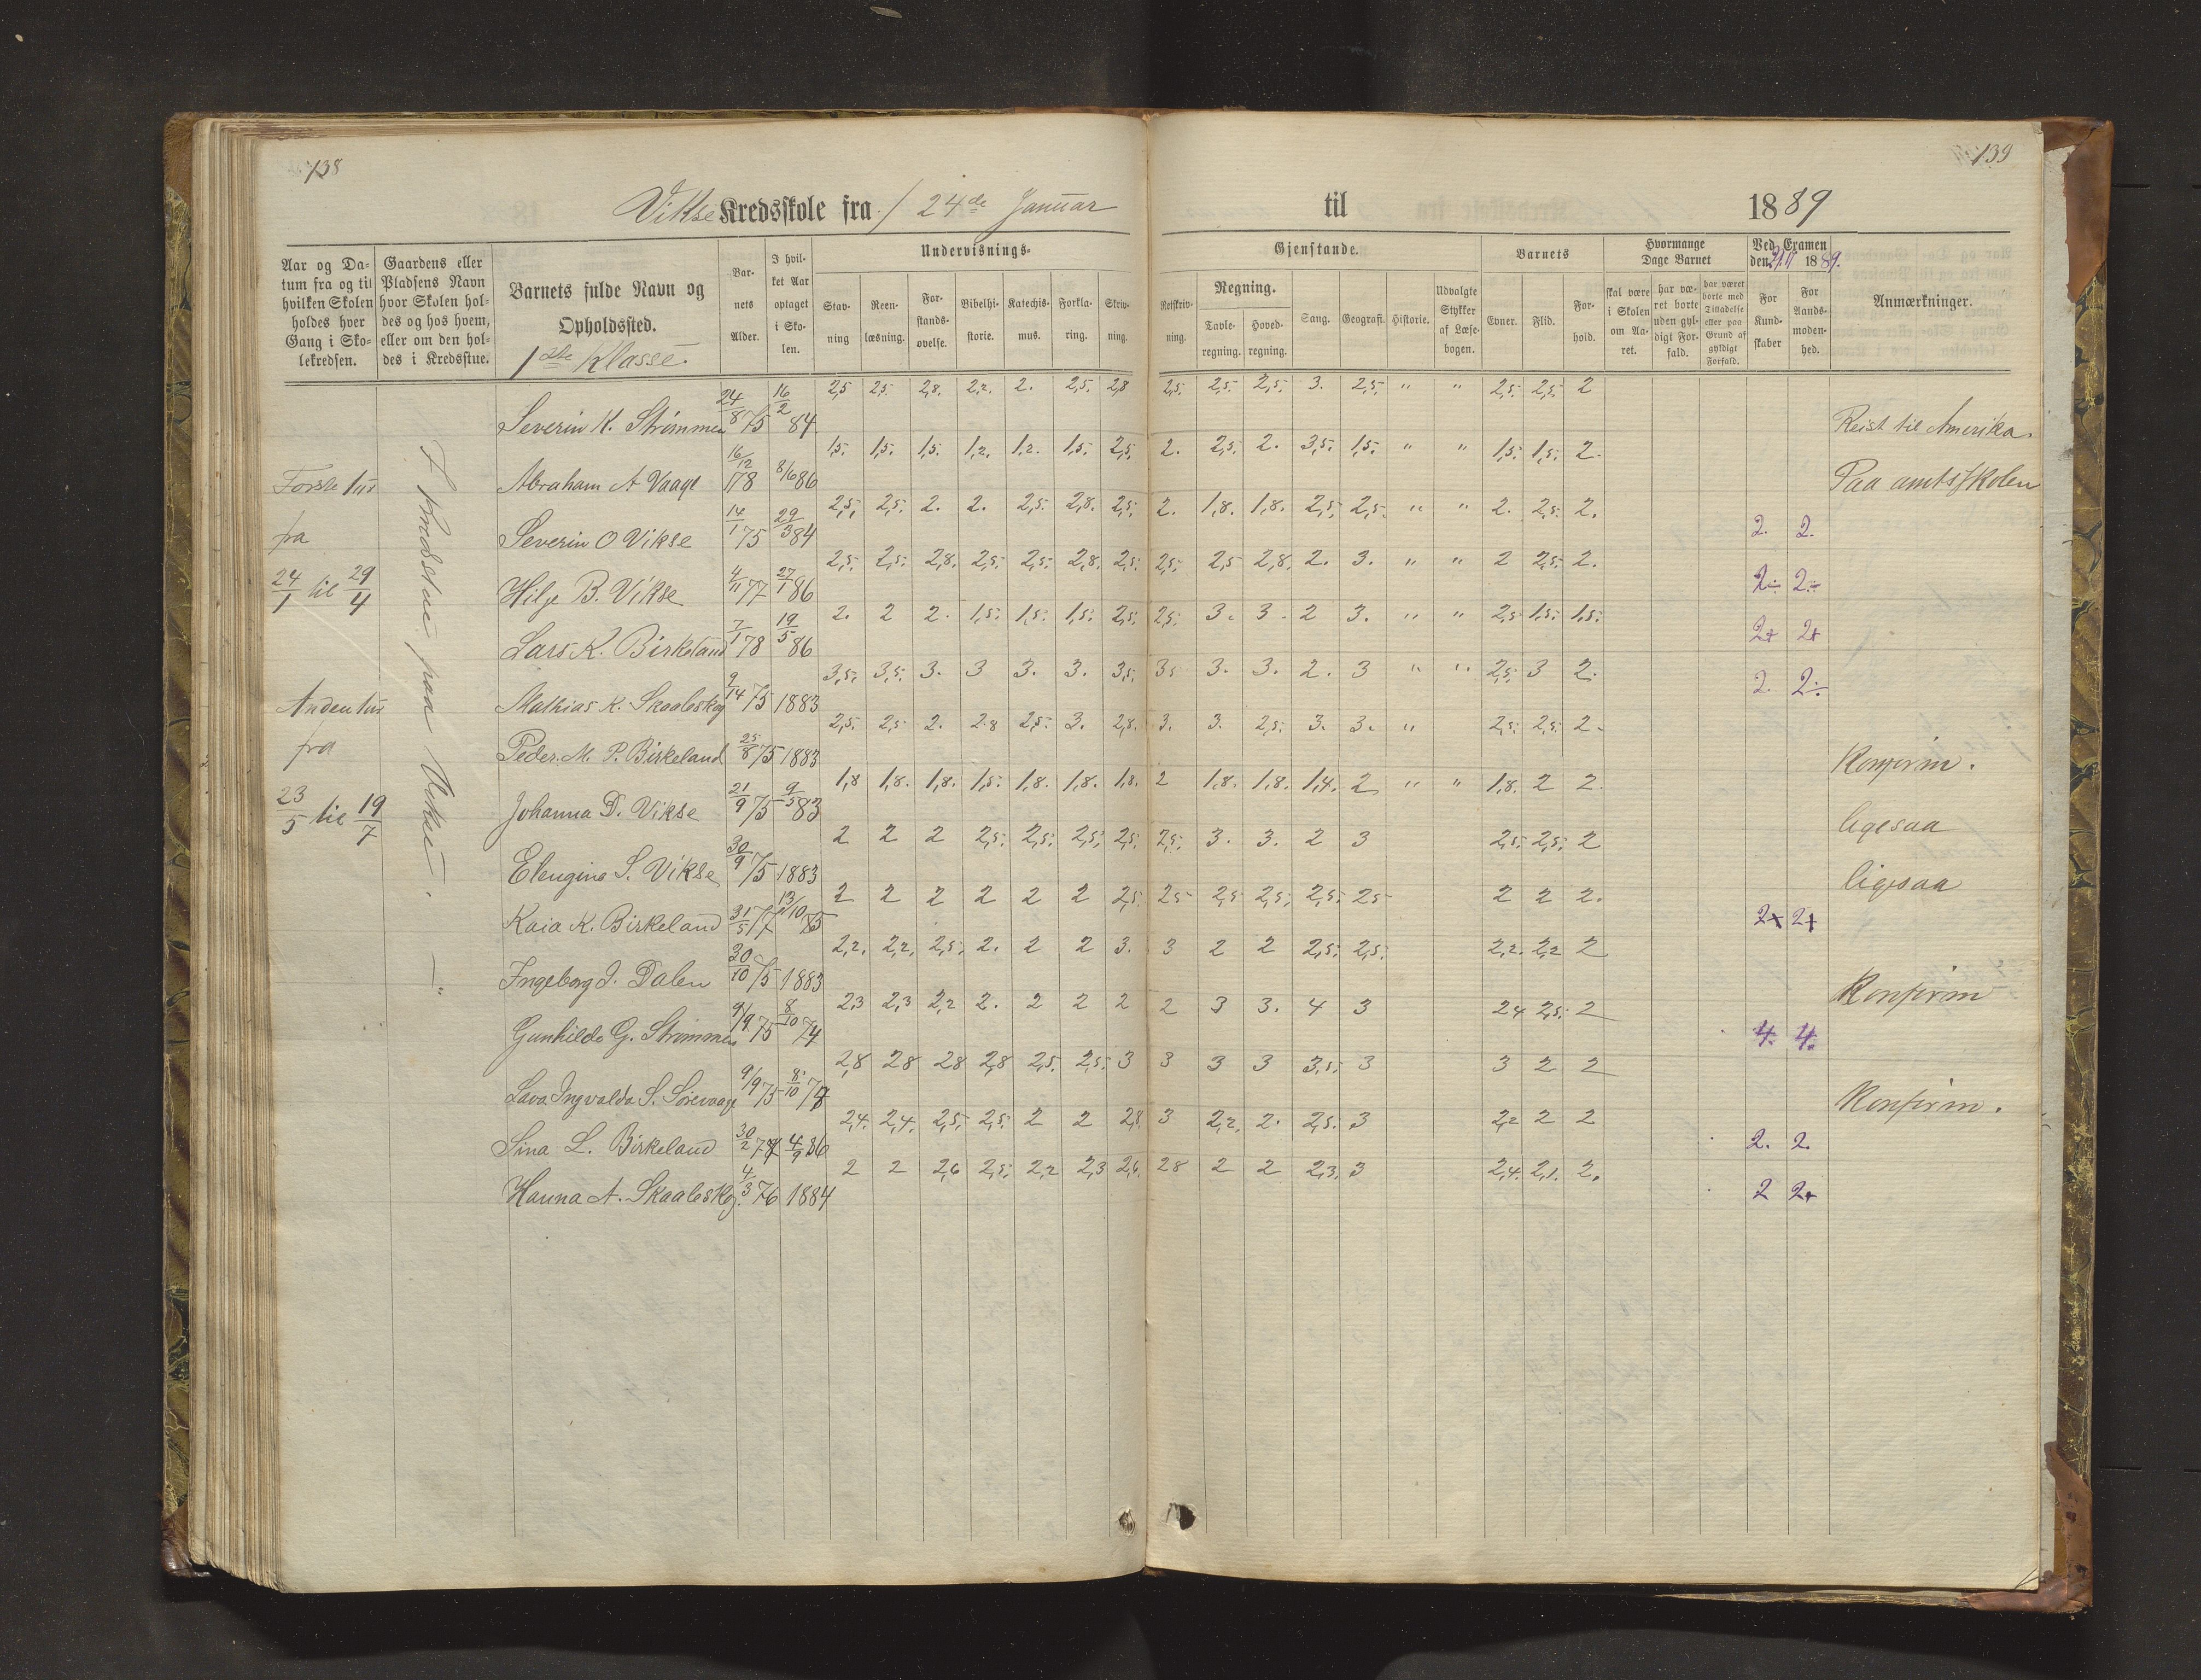 138
139
Vikse Kredsskole fra 24de Januar til 1889
Aar og Da-
tum fra og til
hvilken Skolen
holdes hver
Gang i Sko-
lekredsen.
Gaardens eller
Pladsens Navn
hvor Skolen hol-
des og hos hvem,
eller om den hol-
des i Kredsstue.
Barnets fulde Navn og
Opholdssted.
1ste Klasse.
Bar-
nets
Alder.
I hvil-
ket Aar
optaget
i Sko-
len.
Undervisnings-
Stav-
ning
Reen-
læsning.
For-
stands-
øvelse.
Bibelhi-
storie.
Katechis-
mus.
Forkla-
ring.
Skriv-
ning.
Gjenstande.
Retskriv-
ning.
Regning.
Tavle-
regning.
Hoved-
regning.
Sang.
Geografi.
Historie.
Udvalgte
Stykker
af Læse-
bogen.
Barnets
Evner.
Flid.
For-
hold.
Hvormange
Dage Barnet
skal være
i Skolen
om Aa-
ret.
har væ-
ret borte
uden gyl-
digt For-
fald.
har været
borte med
Tilladelse
eller paa
Grund af
gyldigt
Forfald.
Ved Examen
den 1889.
For
Kund-
skaber
For
Aands-
moden-
hed.
Anmærkninger.
Første tur
fra
24/1 til 29/4
Anden tur
fra
23/5 til 19/7
paa Vikse.
Severin K. Strømmen 24/8 75 16/2 84 2,5 2,5 2,8 2,2 2. 2,5 2,8 2,5 2,5 2,5 3. 2,5 " " 2,5 2,5 2 Reist til Amerika.
Abraham A Vaage 16/12 78 8/6 86 1,5 1,5 1,5 1,2 1,2 1,5 2,5 2. 2,5 2. 3,5 1,5 " " 1,5 1,5 2. Paa amtsskolen
Severin O Vikse 14/1 75 29/3 84 2,5 2,5 2. 2. 2,5 2,8 2,5 2. 1,8 1,8 2,5 2,5 " " 2. 2,5 2. 2. 2.
Hilje B. Vikse 4/11 77 27/1 86 2,5 2,5 2,8 2,5 2,5 2,8 2,5 2,5 2,5 2,8 2. 3. " " 2 2,5 2. 2÷ 2÷
Lars K. Birkeland 7/1 78 19/5 86 2. 2 2. 1,5 1,5 1,5 2,5 2,5 3. 3. 2 3. " " 2,5 1,5 1,5 2+ 2+
Mathias K. Skaaleskog 9/14 75 1883 3,5 3,5 3. 3 3. 3. 3,5 35 3. 3. 2. 3 " " 2,5 3 2. 2. 2÷
Peder. M. P. Birkeland 25/8 75 1883 2,5 2,5 2. 2,8 2,5 3. 2,8 3. 3. 2,5 3. 3. " 2,5 2,5 2. Konfirm.
Johanna D. Vikse 21/9 75 9/5 83 1,8 1,8 1,8 1,5 1,8 1,8 1,8 2 1,8 1,8 1,4 2 " " 1,8 2 2. ligesaa
Elengine S. Vikse 30/9 75 1883 2 2 2 2,5 2,5 2,5 2,5 2,5 3. 3. 2 3 2,5 2,5 2 ligesaa
Kaia K. Birkeland 31/5 77 13/10 85 2 2 2 2 2 2 2,5 25 2,5 2,5 2,5 25 2 2 2. 2+ 2+
Ingeborg I. Dalen 30/10 75 1883 2,2 2,2 2,5 2. 2 2 3. 3 2 2 2,5 2,5 2,2 2,2 2 Konfirm
Gunhilde G. Strømmen 9/9 75 8/10 74 2,3 2,3 2,2 2. 2 2 2 2 3 3. 4 3 24 2,5 2 4. 4.
Lava Ingvalda S. Sørevaage 9/9 75 8/10 2,8 28 28 2,8 2,5 2,5 3 3 3 3 3,5 3 3 2 2 Konfirm.
Sina L. Birkeland 30/2 77 4/9 86 2,4 2,4 2,5 2,5 2 2 2,8 3 2,2 2. 2,5 3 2,2 2 2 2. 2.
Hanna A. Skaaleskog. 4/3 76 1884 2 2 2,6 2,5 2,2 2,3 2,6 28 2 2 2,3 3 2,4 2,1 2. 2 2+